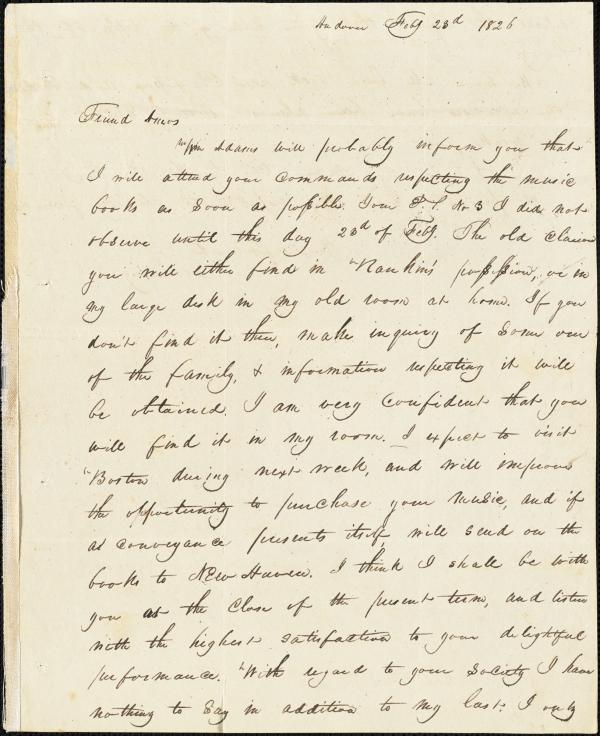 Andover Feby 23d 1826
Friend Amos
Adams will probably inform you that
I will attend your commands respecting the music
books as soon as possible. Your P.S. No 3 I did not
observe until this day 23d of Feby. The old
you will either find in Rankin's possession, or in
my large desk in my old room at home. If you
don't find it there, make inquiry of some one
of the family, & information respecting it will
be obtained. I am very confident that you
will find it in my room. I expect to visit
Boston during next week, and will improve
the opportunity to purchase your music, and if
a conveyance presents itself, will send on the
books to New Haven. I think I shall be with
you at the close of the present term, and listen
with the highest satisfaction to your delightful
performance. With regard to your Society I have
nothing to say in addition to my last. I only